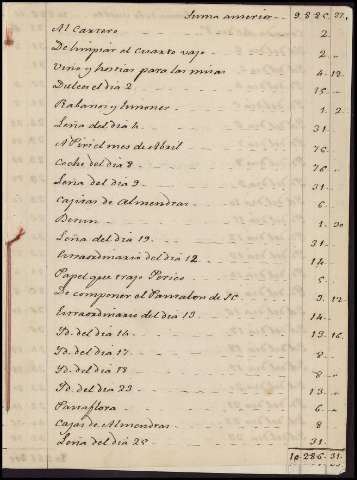 Suma anterior 9.885. 27.
Al Cartero 2. "
De limpiar el Cuarto vajo 2. "
Vino y hostias para las misas 4. 12
Dulces el dia 2 15. "
Rabanos y limones 1. 2
Leña del dia 4 31. "
A Piri el mes de Abril 76. "
Coche del dia 8 76. "
Leña del dia 9 31. "
Cajitas de Almendras 6. "
1. 30
Leña del dia 19 31. "
Extraordinario del dia 12 14. "
Papel que trajo Perico 5. "
De componer el Pantalon de 3. 12
Extraordinario del dia 13 14. "
Yd. del dia 14 13. 16
Yd. del dia 17 8. "
Yd. del dia 18 8. "
Yd. del dia 23 13. "
Pasaflora 6. "
Cajas de Almendras 8. "
Leña del dia 25 31. "
10.286. 31.